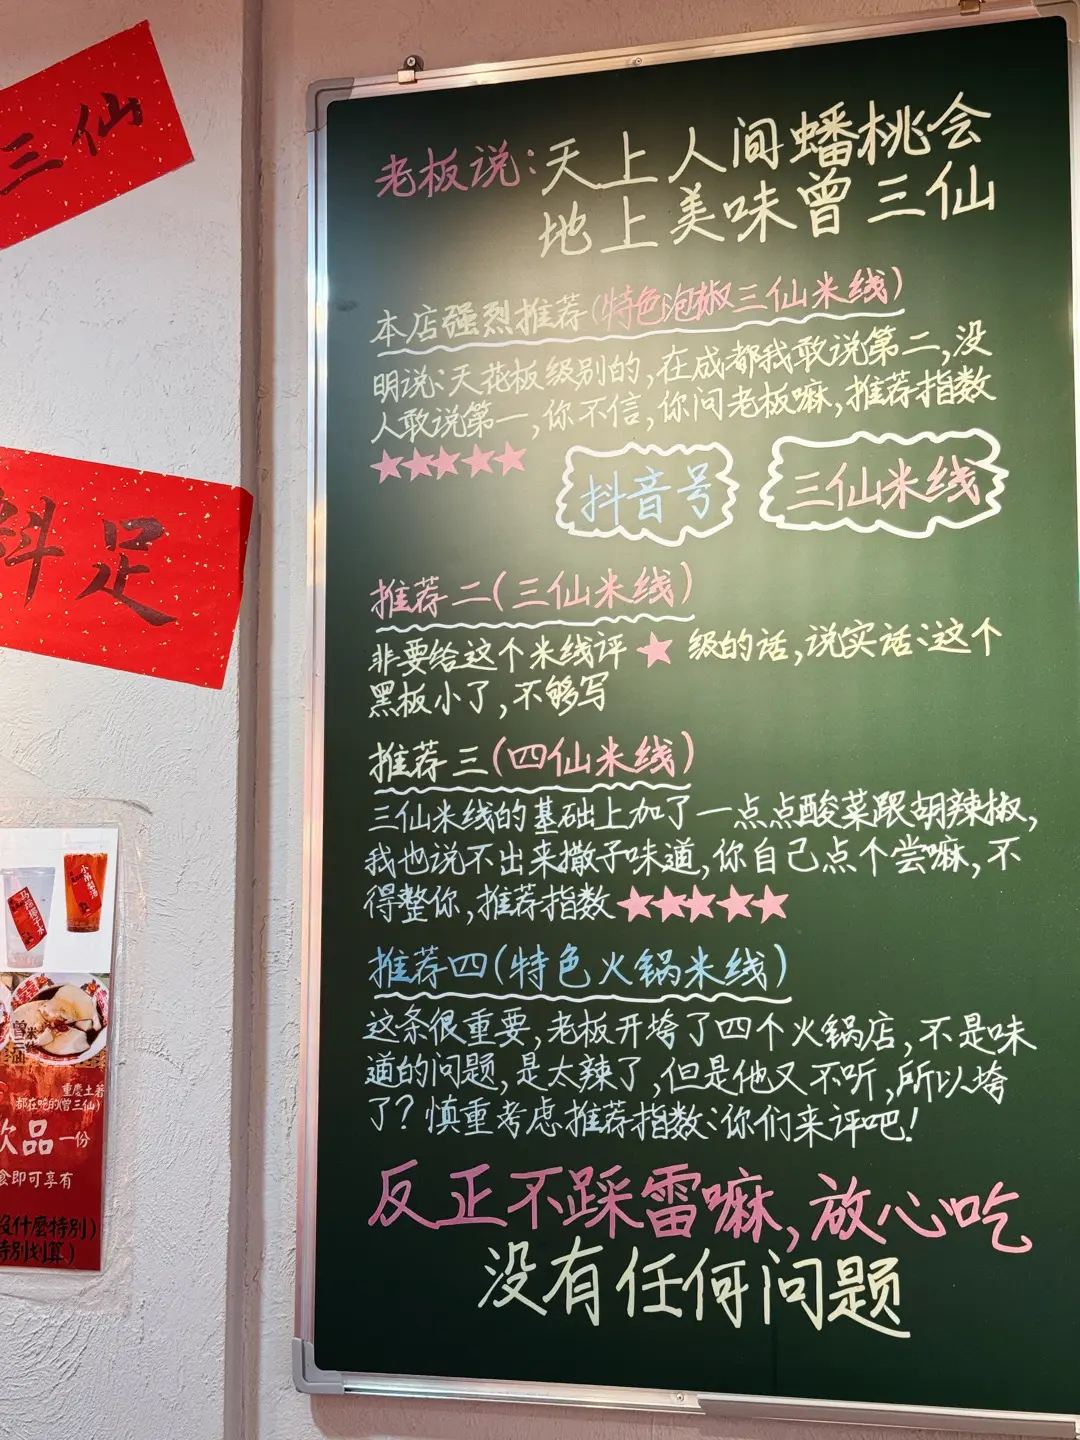 三仙
料足
老板说:天上人间蟠桃会
地上美味曾三仙
本店强烈推荐(特色泡椒三仙米线)
明说:天花板级别的,在成都我敢说第二,没
人敢说第一,你不信,你问老板嘛,推荐指数
★★★★★
抖音号
三仙米线
推荐二(三仙米线)
非要给这个米线评★级的话,说实话:这个
黑板小了,不够写
推荐三(四仙米线)
三仙米线的基础上加了一点点酸菜跟胡辣椒,
我也说不出来撒子味道,你自己点个尝嘛,不
得整你,推荐指数★★★★★
推荐四(特色火锅米线)
这条很重要,老板开垮了四个火锅店,不是味
道的问题,是太辣了,但是他又不听,所以垮
了?慎重考虑推荐指数:你们来评吧!
反正不踩雷嘛,放心吃
没有任何问题
小吊梨汤
重慶土著
都在吃的(曾三仙)
饮品一份
食即可享有
没什麼特别)
特别划算)